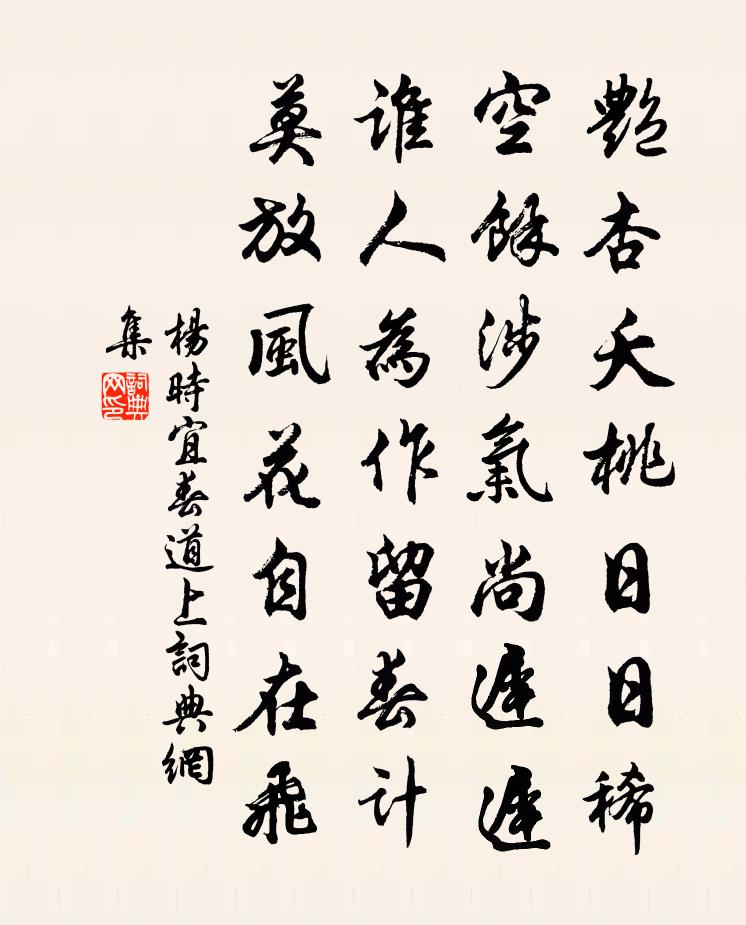 艷杏夭桃日日稀
空餘涉氣尚遲遲
誰人為作留春計
莫放風花自在飛
楊時宜春道上詞典網
集
詞典
网印